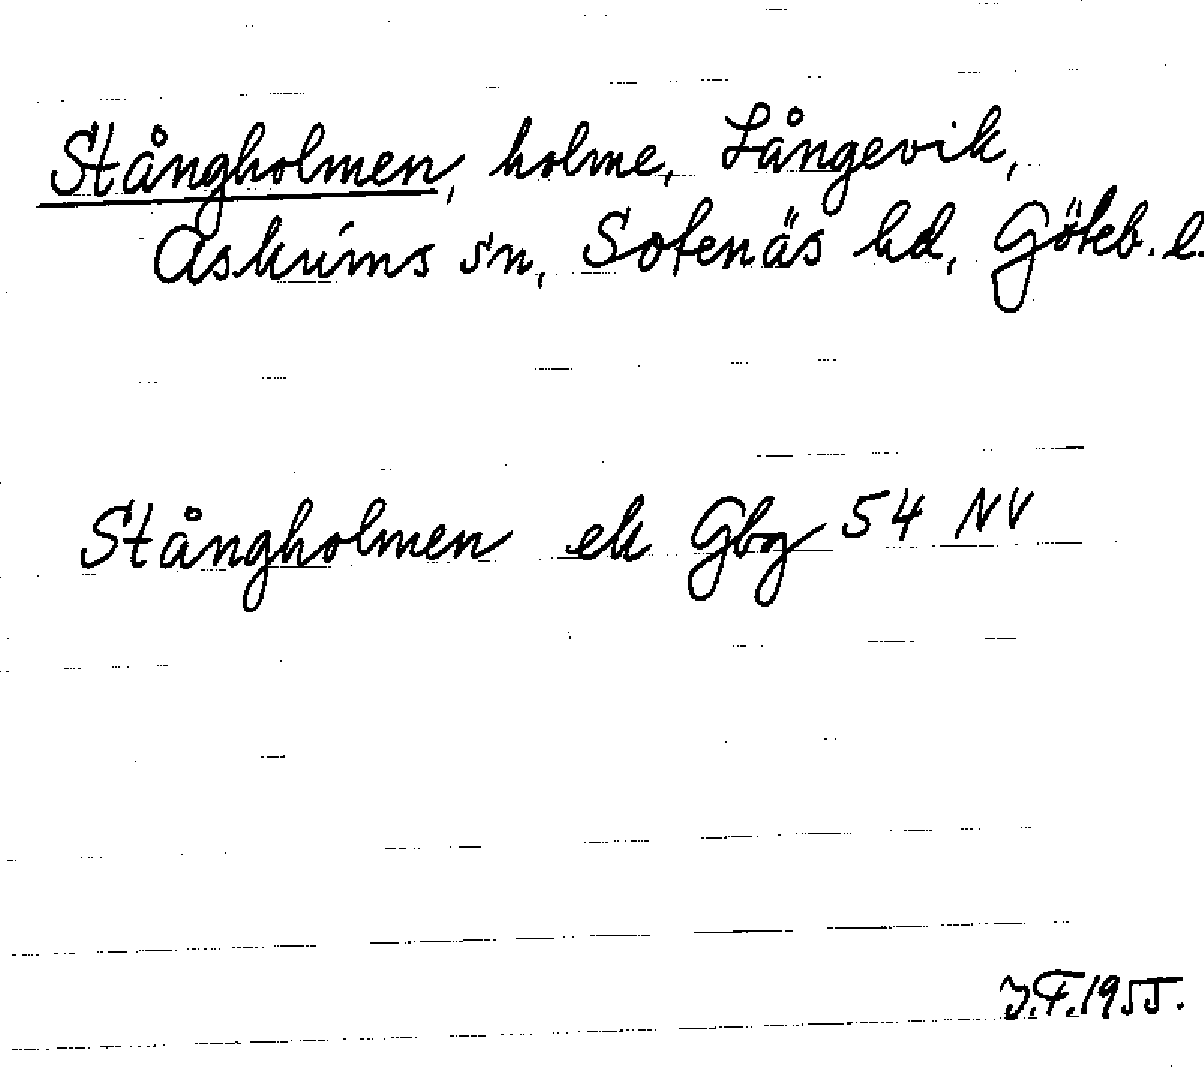 Stångholmen, holme, Långevik,
Askums sn, Sotenäs hd, Göteb. l.
Stångholmen ek Gbg 54 NV
J.F.1955.